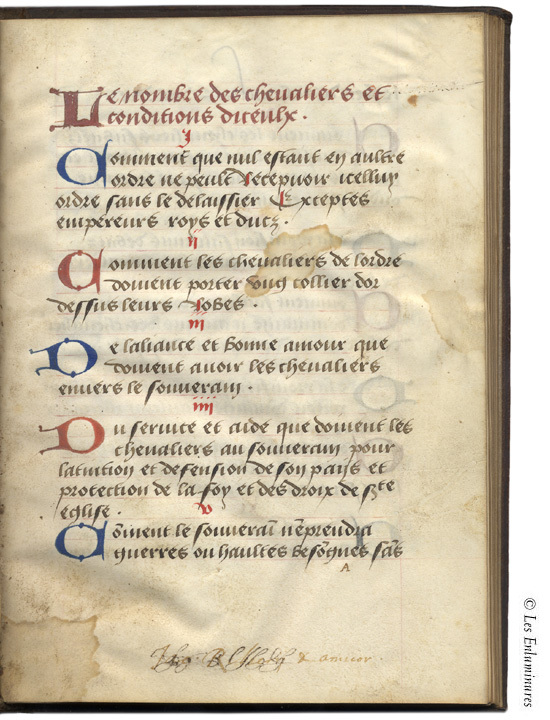 Le nombre des chevaliers et
conditions diceulx .
j
Comment que nul estant en aultre
ordre ne peult recepvoir icelluy
ordre sans le delaissier Exceptes
empereurs roys et ducz .
ij
Comment les chevaliers de lordre
doivent porter ung collier dor
dessus leurs robes .
iij
De laliance et bonne amour que
doivent avoir les chevaliers
envers le souverain .
iiij
Du service et aide que doivent les
chevaliers au souverain pour
latuition et defension de son pays et
protection de la foy et des droix de scte
eglise .
v
Comment le souverai nēprendra
guerres ou haultes besongnes sās
A
amicor
© Les Enluminures